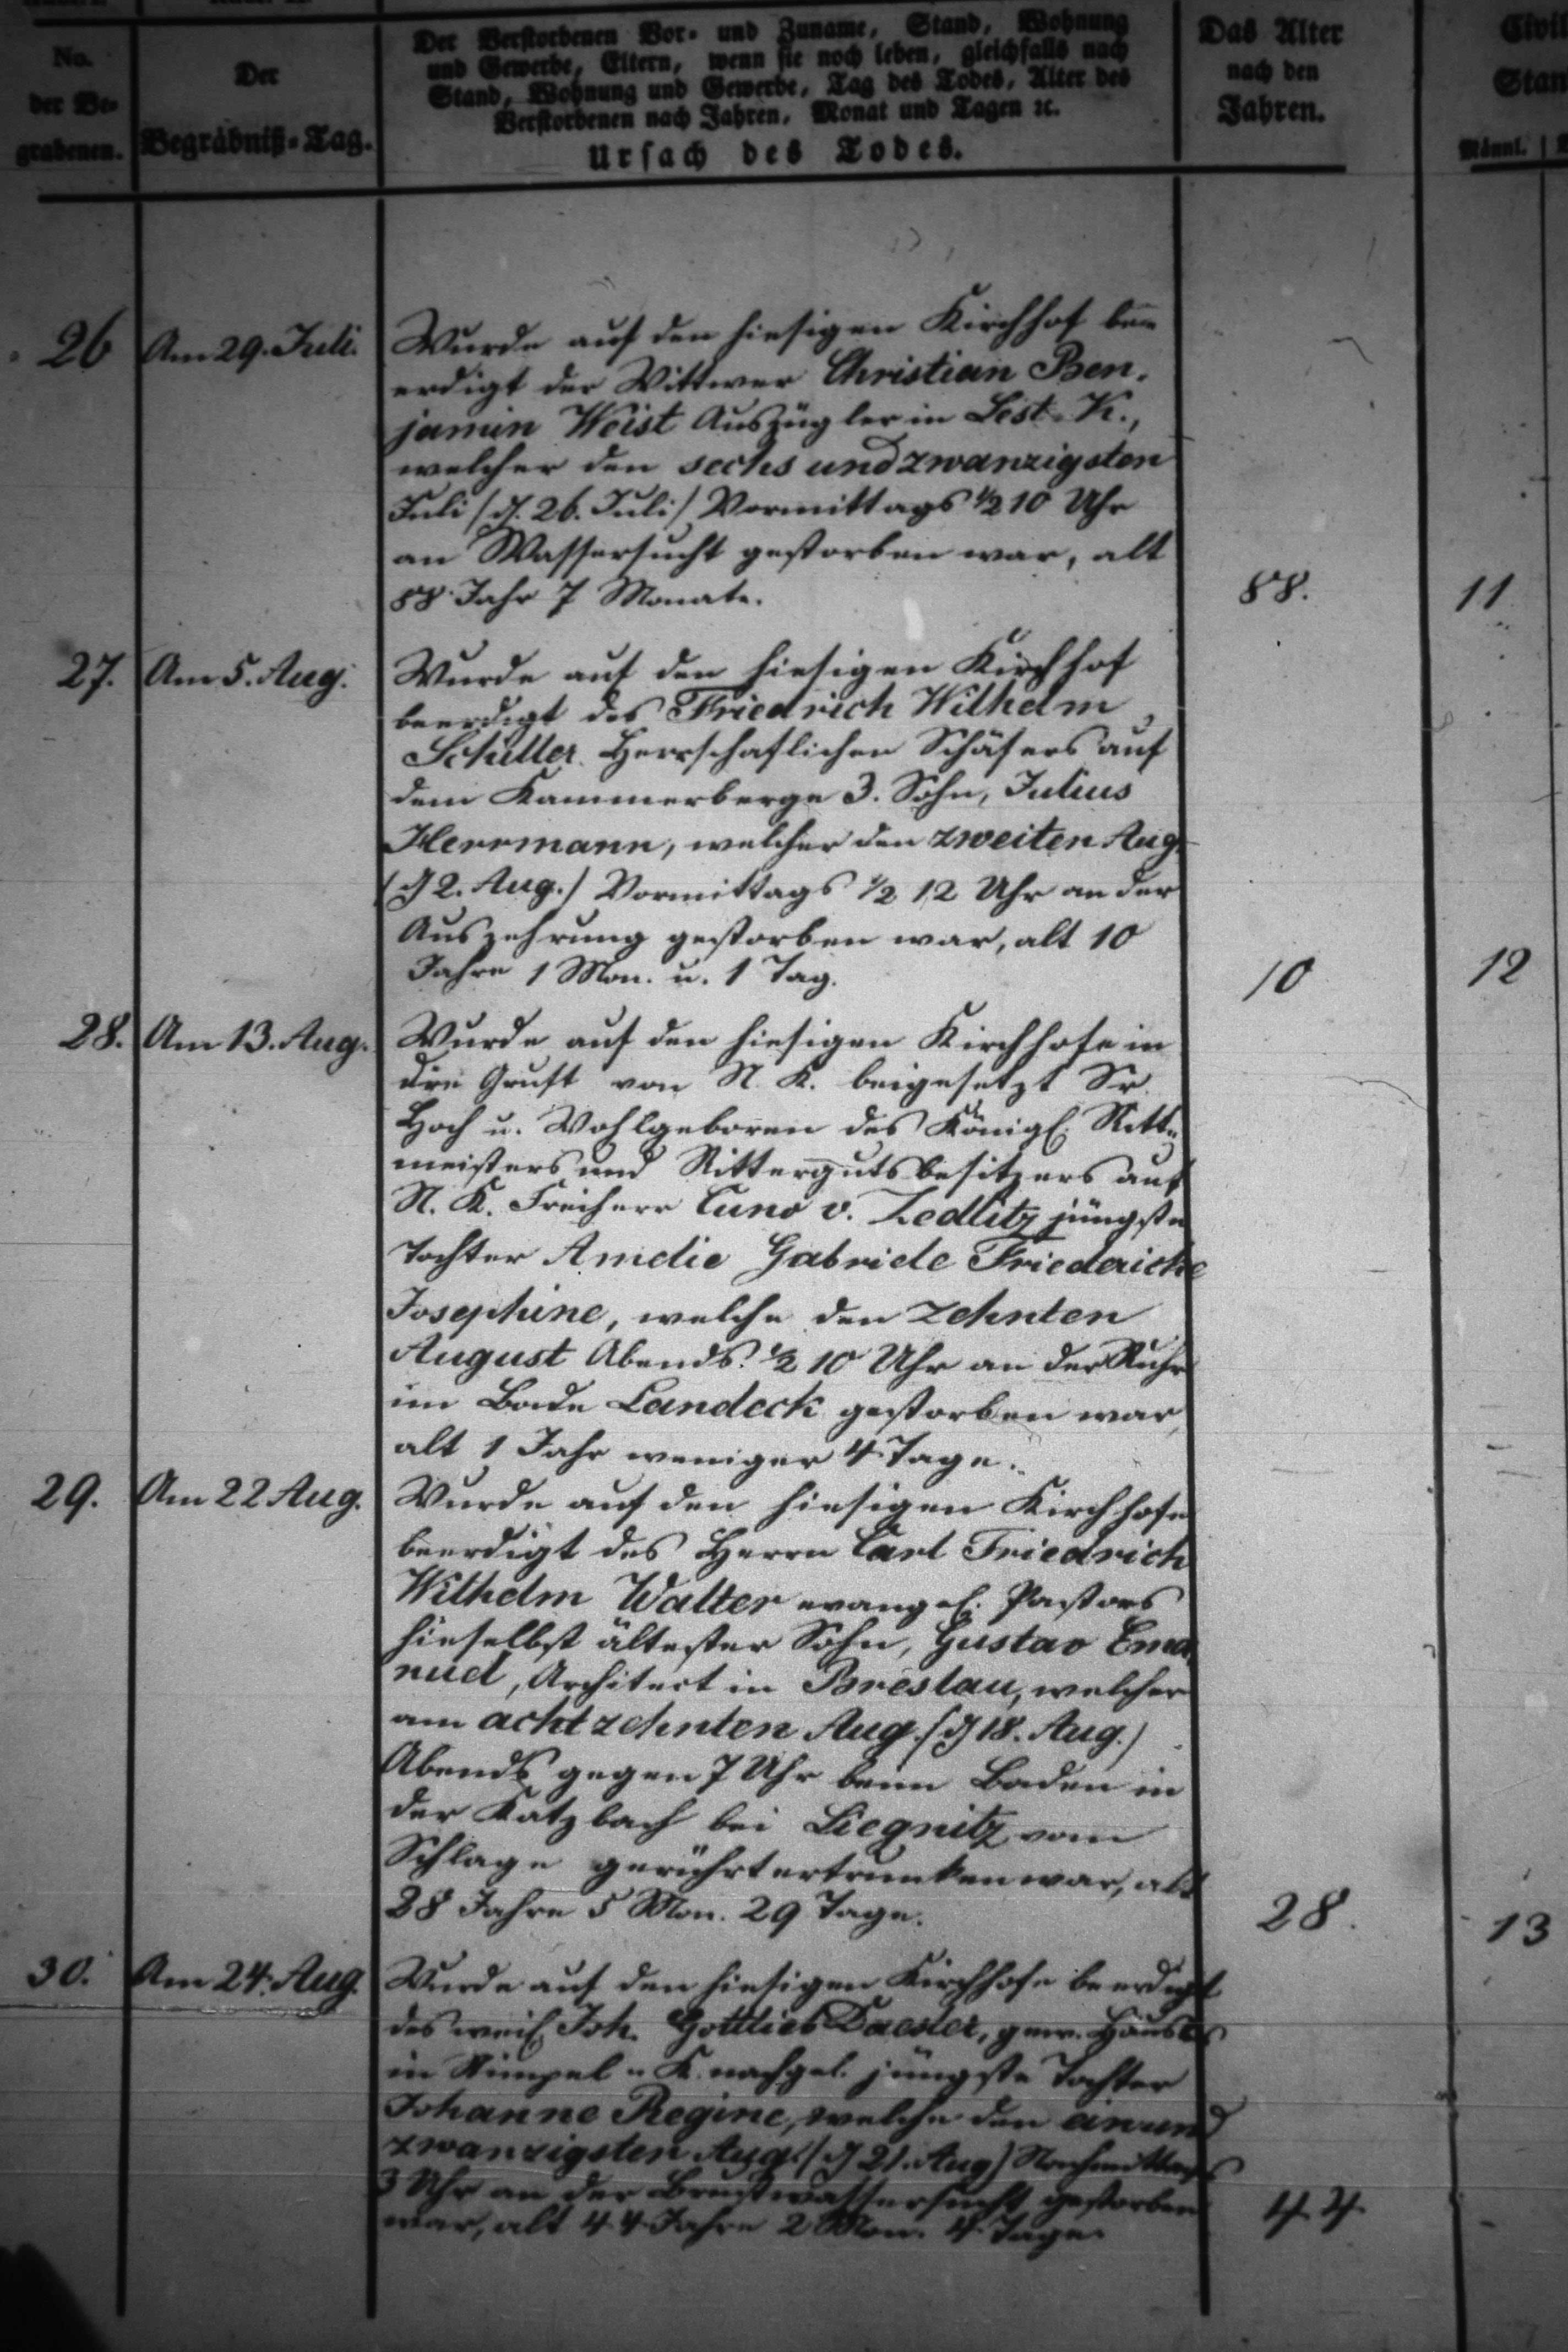 No.
der Be-
grabenen.
Der
Begräbniß-Tag.
Der Verstorbenen Vor- und Zuname, Stand, Wohnung
und Gewerbe, Eltern, wenn sie noch leben, gleichfalls nach
Stand, Wohnung und Gewerbe, Tag des Todes, Alter des
Verstorbenen nach Jahren, Monat und Tagen ꝛc.
Ursach des Todes.
Das Alter
nach den
Jahren.
Männl.
26 Am 29. Juli. Wurde auf den hiesigen Kirchhof
erdigt der Wittwer Christian Ben-
jamin Weist Auszügler in K.,
welcher den sechs und zwanzigsten
Juli /d. 26. Juli/ Vormittags ½ 10 Uhr
an Wassersucht gestorben war, alt
88 Jahr 7 Monate. 88. 11
27. Am 5. Aug. Wurde auf den hiesigen Kirchhof
beerdigt des Friedrich Wilhelm
Schiller Herrschaftlichen Schäfers auf
dem Kammerberge 3. Sohn, Julius
Herrmann, welcher den zweiten Aug.
/d 2. Aug./ Vormittags ½ 12 Uhr an der
Auszehrung gestorben war, alt 10
Jahre 1 Mon. u. 1 Tag. 10 12
28. Am 13. Aug. Wurde auf den hiesigen Kirchhofe in
die Gruft von N. K. beigesetzt Sr.
Hoch u. Wohlgeboren des Königl. Ritt-
meisters und Rittergutsbesitzers auf
N. K. Freiherr Cuno v. Zedlitz jüngste
Tochter Amelie Gabriele Friedericke
Josephine, welche den zehnten
August Abends ½ 10 Uhr an der Ruhr
im Bade Landeck gestorben war
alt 1 Jahr weniger 4 Tage.
29. Am 22 Aug. Wurde auf den hiesigen Kirchhofe
beerdigt des Herrn Carl Friedrich
Wilhelm Walter evangel. Pastors
hieselbst ältester Sohn, Gustav Ema-
nuel, Architect in Breslau, welcher
am achtzehnten Aug. /d 18. Aug./
Abends gegen 7 Uhr beim Baden in
der Katzbach bei Liegnitz vom
Schlage gerührt ertrunken war, alt
28 Jahre 5 Mon. 29 Tage. 28. 13
30. Am 24. Aug. Wurde auf den hiesigen Kirchhofe beerdigt
des weil. Joh. Gottlieb gew. Häuslers
in K. nachgel. jüngste Tochter
Johanne Regine, welche den einund
zwanzigsten Aug. /d 21. Aug/ Nachmittags
3 Uhr an der Brustwassersucht gestorben
war, alt 44 Jahre 2 Mon. 4 Tage. 44